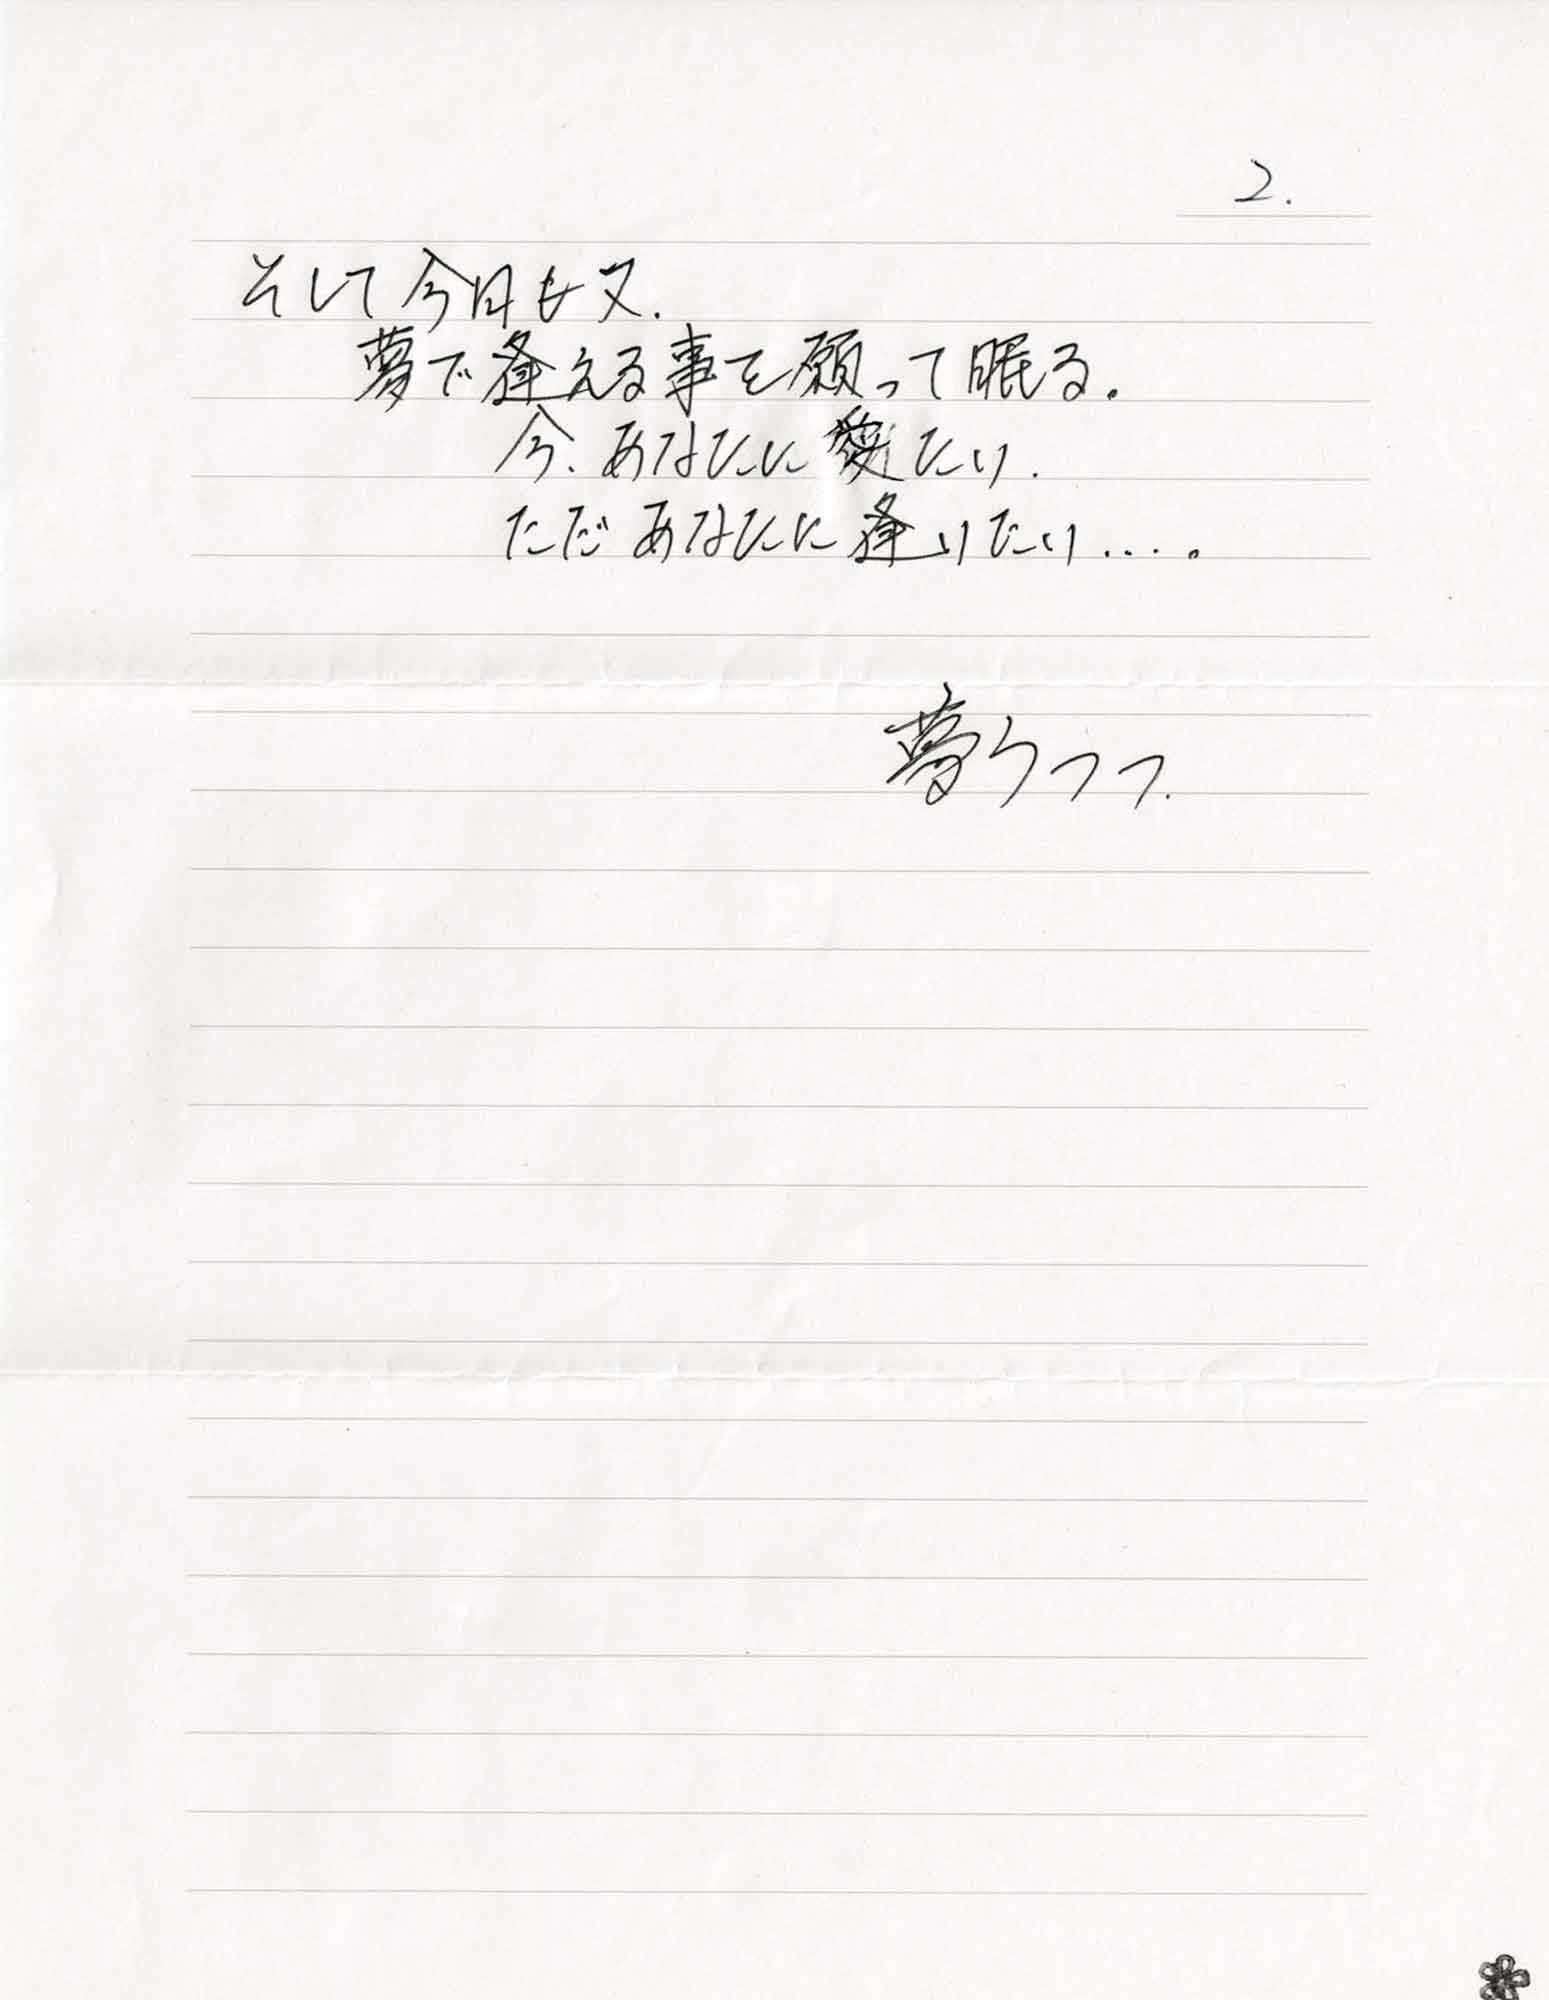 2.
そして今日も又.
夢で逢える事を願って眠る.
今、あなたに愛たい.
ただあなたに逢いたい....。
夢うつつ.